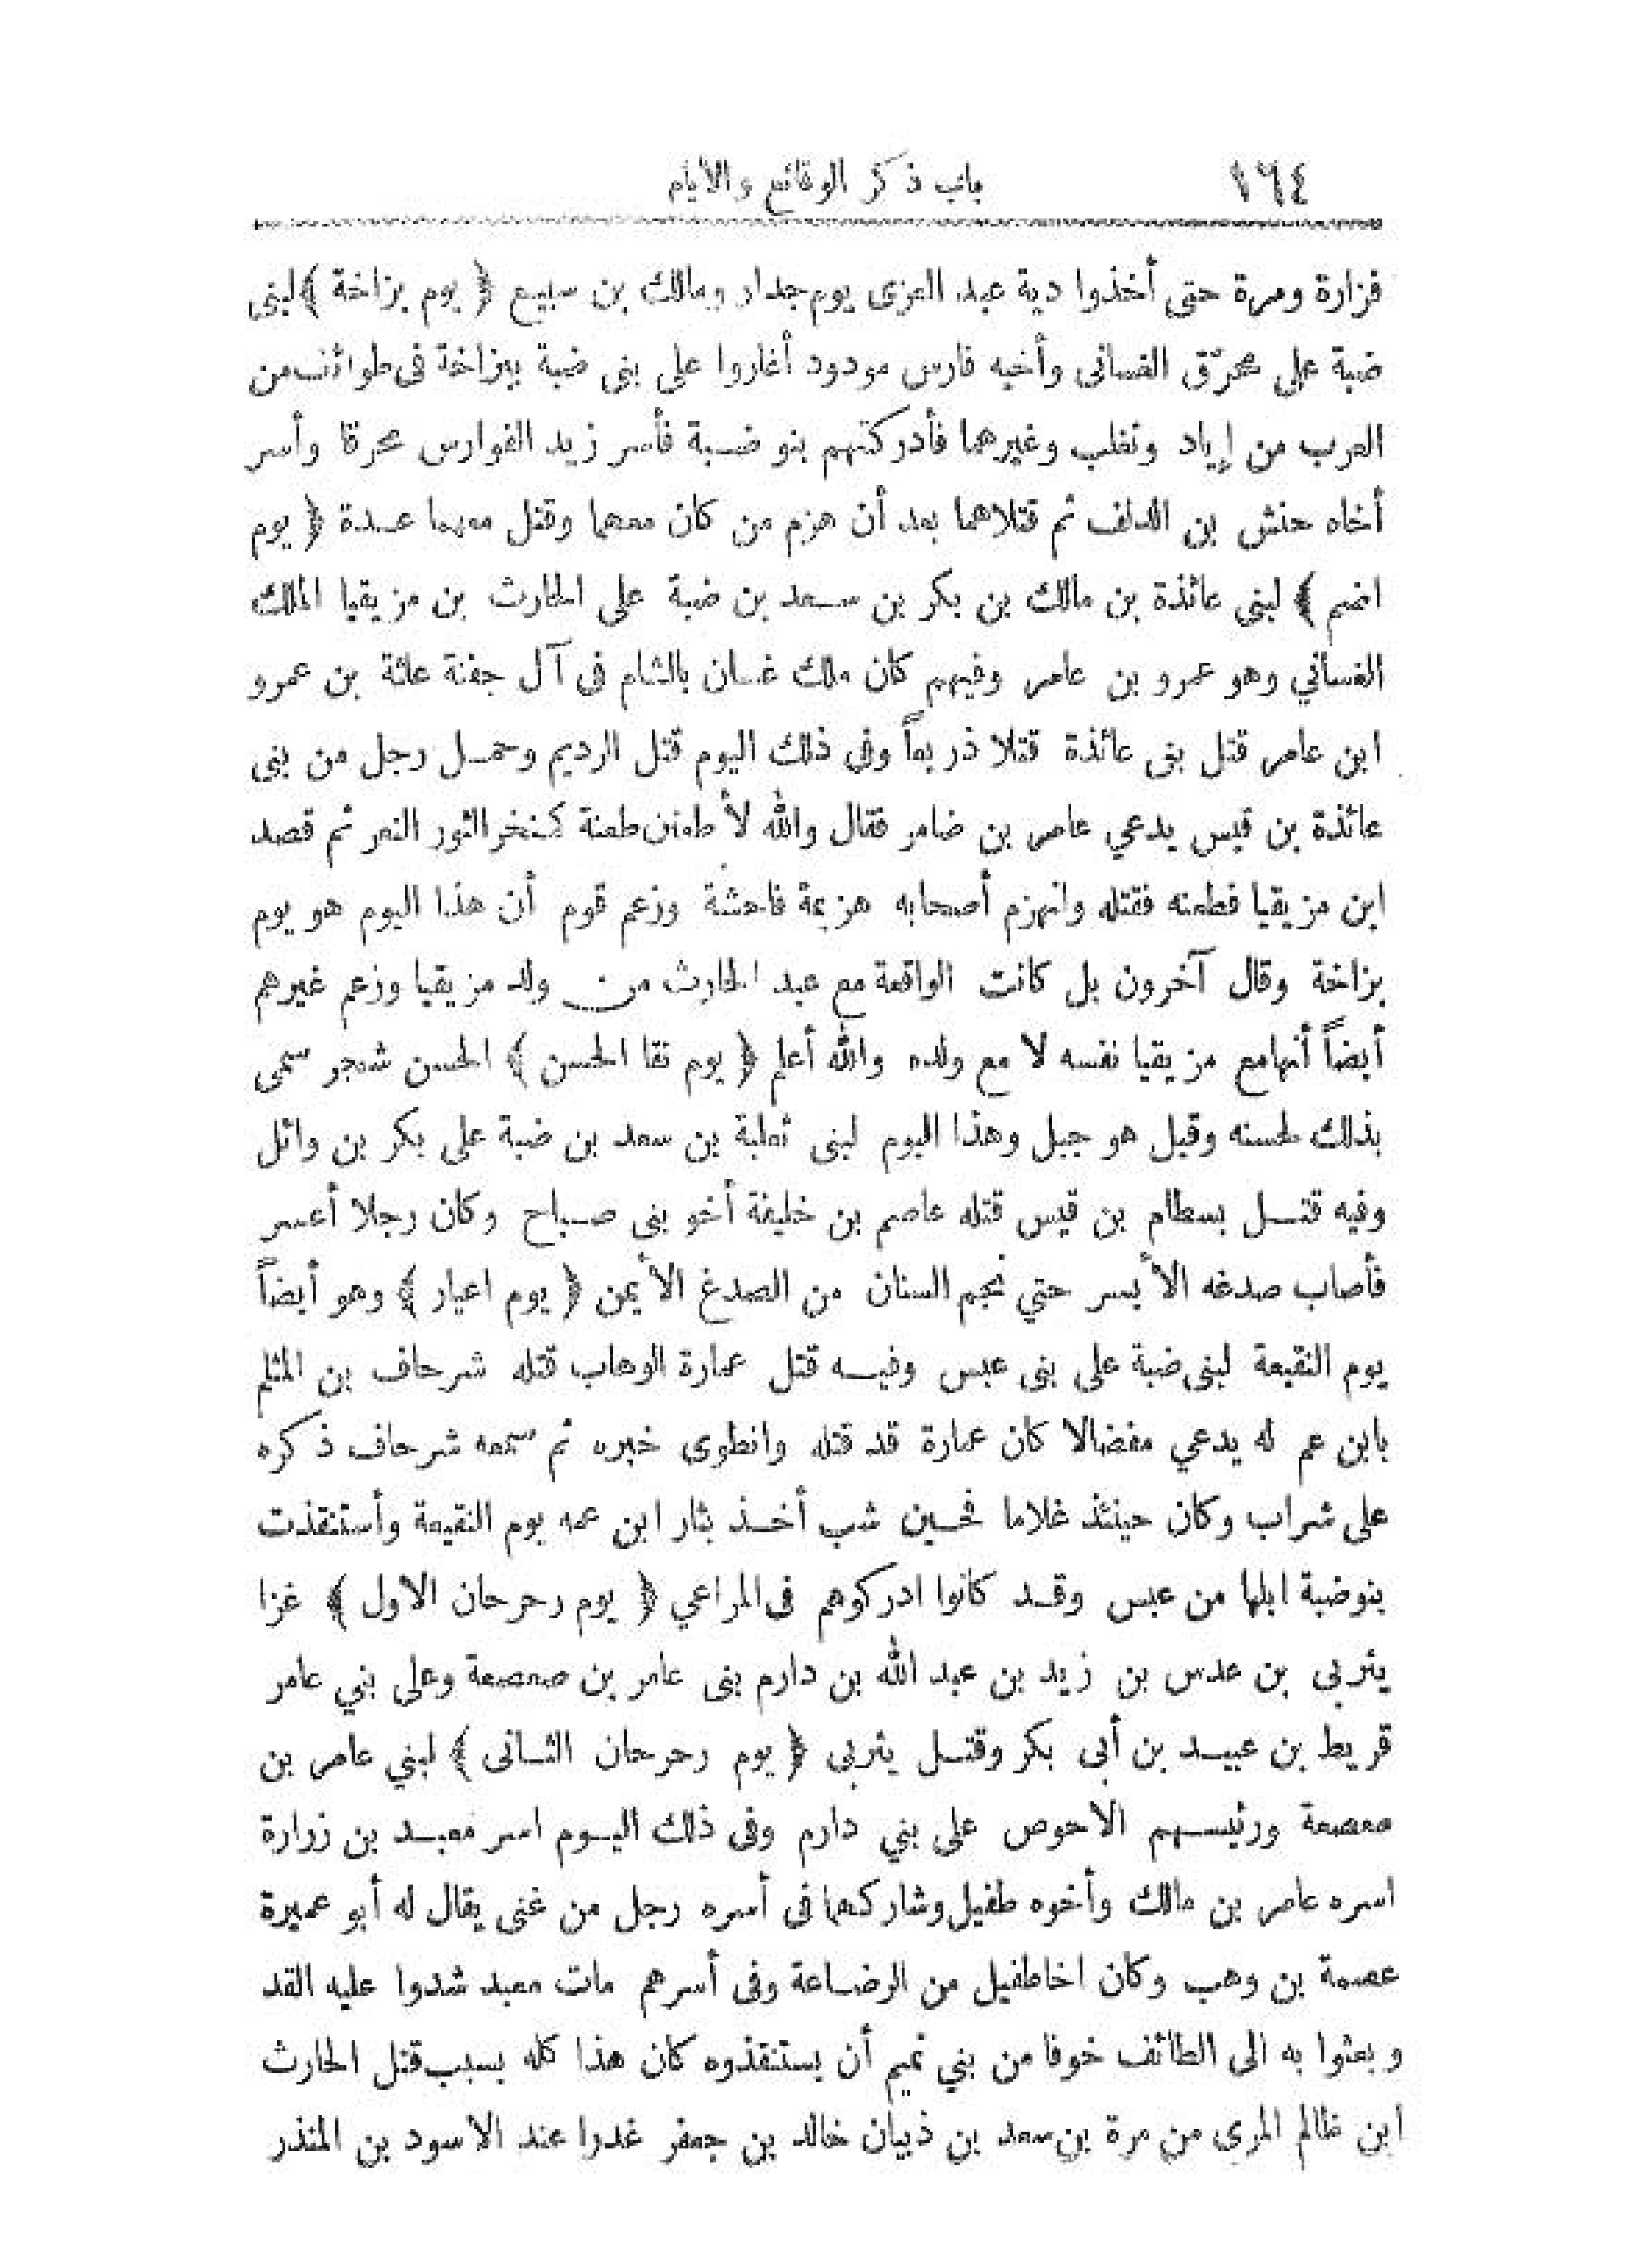 ١٦٤
باب ذكر الوقائع والأيام
فزارة ومرة حتى أخذوا دية عبد العزى يوم جدار ومالك بن سبيع ﴿ يوم بزاخة ﴾ لبنى
ضبة على محرّق الغسانى وأخيه فارس مودود أغاروا على بنى ضبة ببزاخة فى طوائف من
العرب من إياد وتغلب وغيرهما فأدركتهم بنو ضبة فأسر زيد الفوارس محرقا وأسر
أخاه حنش بن الدلف ثم قتلاهما بعد أن هزم من كان معهما وقتل معهما عدة ﴿ يوم
اضم ﴾ لبنى عائذة بن مالك بن بكر بن سعد بن ضبة على الحارث بن مزيقيا الملك
الغساني وهو عمرو بن عامر وفيهم كان ملك غسان بالشام فى آل جفنة علئة بن عمرو
ابن عامر قتل بنى عائذة قتلا ذريعاً وفى ذلك اليوم قتل الرديم وحمل رجل من بنى
عائذة بن قيس يدعي عامر بن ضامر فقال والله لأطعنن طعنة كنخر الثور النعر ثم قصد
ابن مزيقيا فطعنه فقتله وانهزم أصحابه هزيمة فاحشة وزعم قوم أن هذا اليوم هو يوم
بزاخة وقال آخرون بل كانت الواقعة مع عبد الحارث من ولد مزيقيا وزعم غيرهم
أيضاً أنها مع مزيقيا نفسه لا مع ولده والله أعلم ﴿ يوم نقا الحسن ﴾ الحسن شجر سمى
بذلك لحسنه وقيل هو جبل وهذا اليوم لبنى ثعلبة بن سعد بن ضبة على بكر بن وائل
وفيه قتل بسطام بن قيس قتله عاصم بن خليفة أخو بنى صباح وكان رجلا أعسر
فأصاب صدغه الأيسر حتي نجم السنان من الصدغ الأيمن ﴿ يوم اعيار ﴾ وهو أيضاً
يوم النقيعة لبنى ضبة على بنى عبس وفيه قتل عمارة الوهاب قتله شرحاف بن المثلم
بابن عم له يدعي مفضالا كان عمارة قد قتله وانطوى خبره ثم سمعه شرحاف ذكره
على شراب وكان حينئذ غلاما فحين شب أخذ بثار ابن عمه يوم النقيعة وأستنقذت
بنوضبة ابلها من عبس وقد كانوا ادركوهم فى المراعي ﴿ يوم رحرحان الاول ﴾ غزا
يثربى بن عدس بن زيد بن عبد الله بن دارم بنى عامر بن صعصعة وعلى بني عامر
قريط بن عبيد بن أبى بكر وقتل يثربى ﴿ يوم رحرحان الثانى ﴾ لبني عامر بن
صعصعة ورئيسهم الاحوص على بني دارم وفى ذلك اليوم اسر معبد بن زرارة
اسره عامر بن مالك وأخوه طفيل وشاركهما فى أسره رجل من غنى يقال له أبو عميرة
عصمة بن وهب وكان اخا طفيل من الرضاعة وفى أسرهم مات معبد شدوا عليه القد
وبعثوا به الى الطائف خوفا من بني تميم أن يستنقذوه كان هذا كله بسبب قتل الحارث
ابن ظالم المرى من مرة بن سعد بن ذبيان خالد بن جعفر غدرا عند الاسود بن المنذر